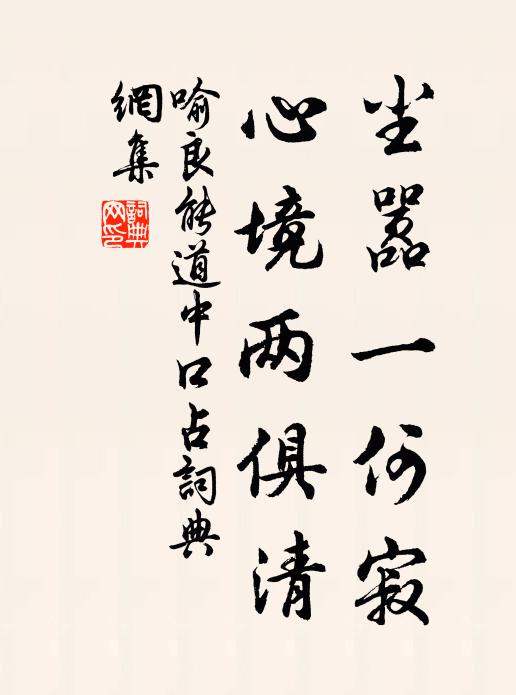 尘嚣一何寂
心境两俱清
喻良能道中口占詞典
網集
詞典
网印